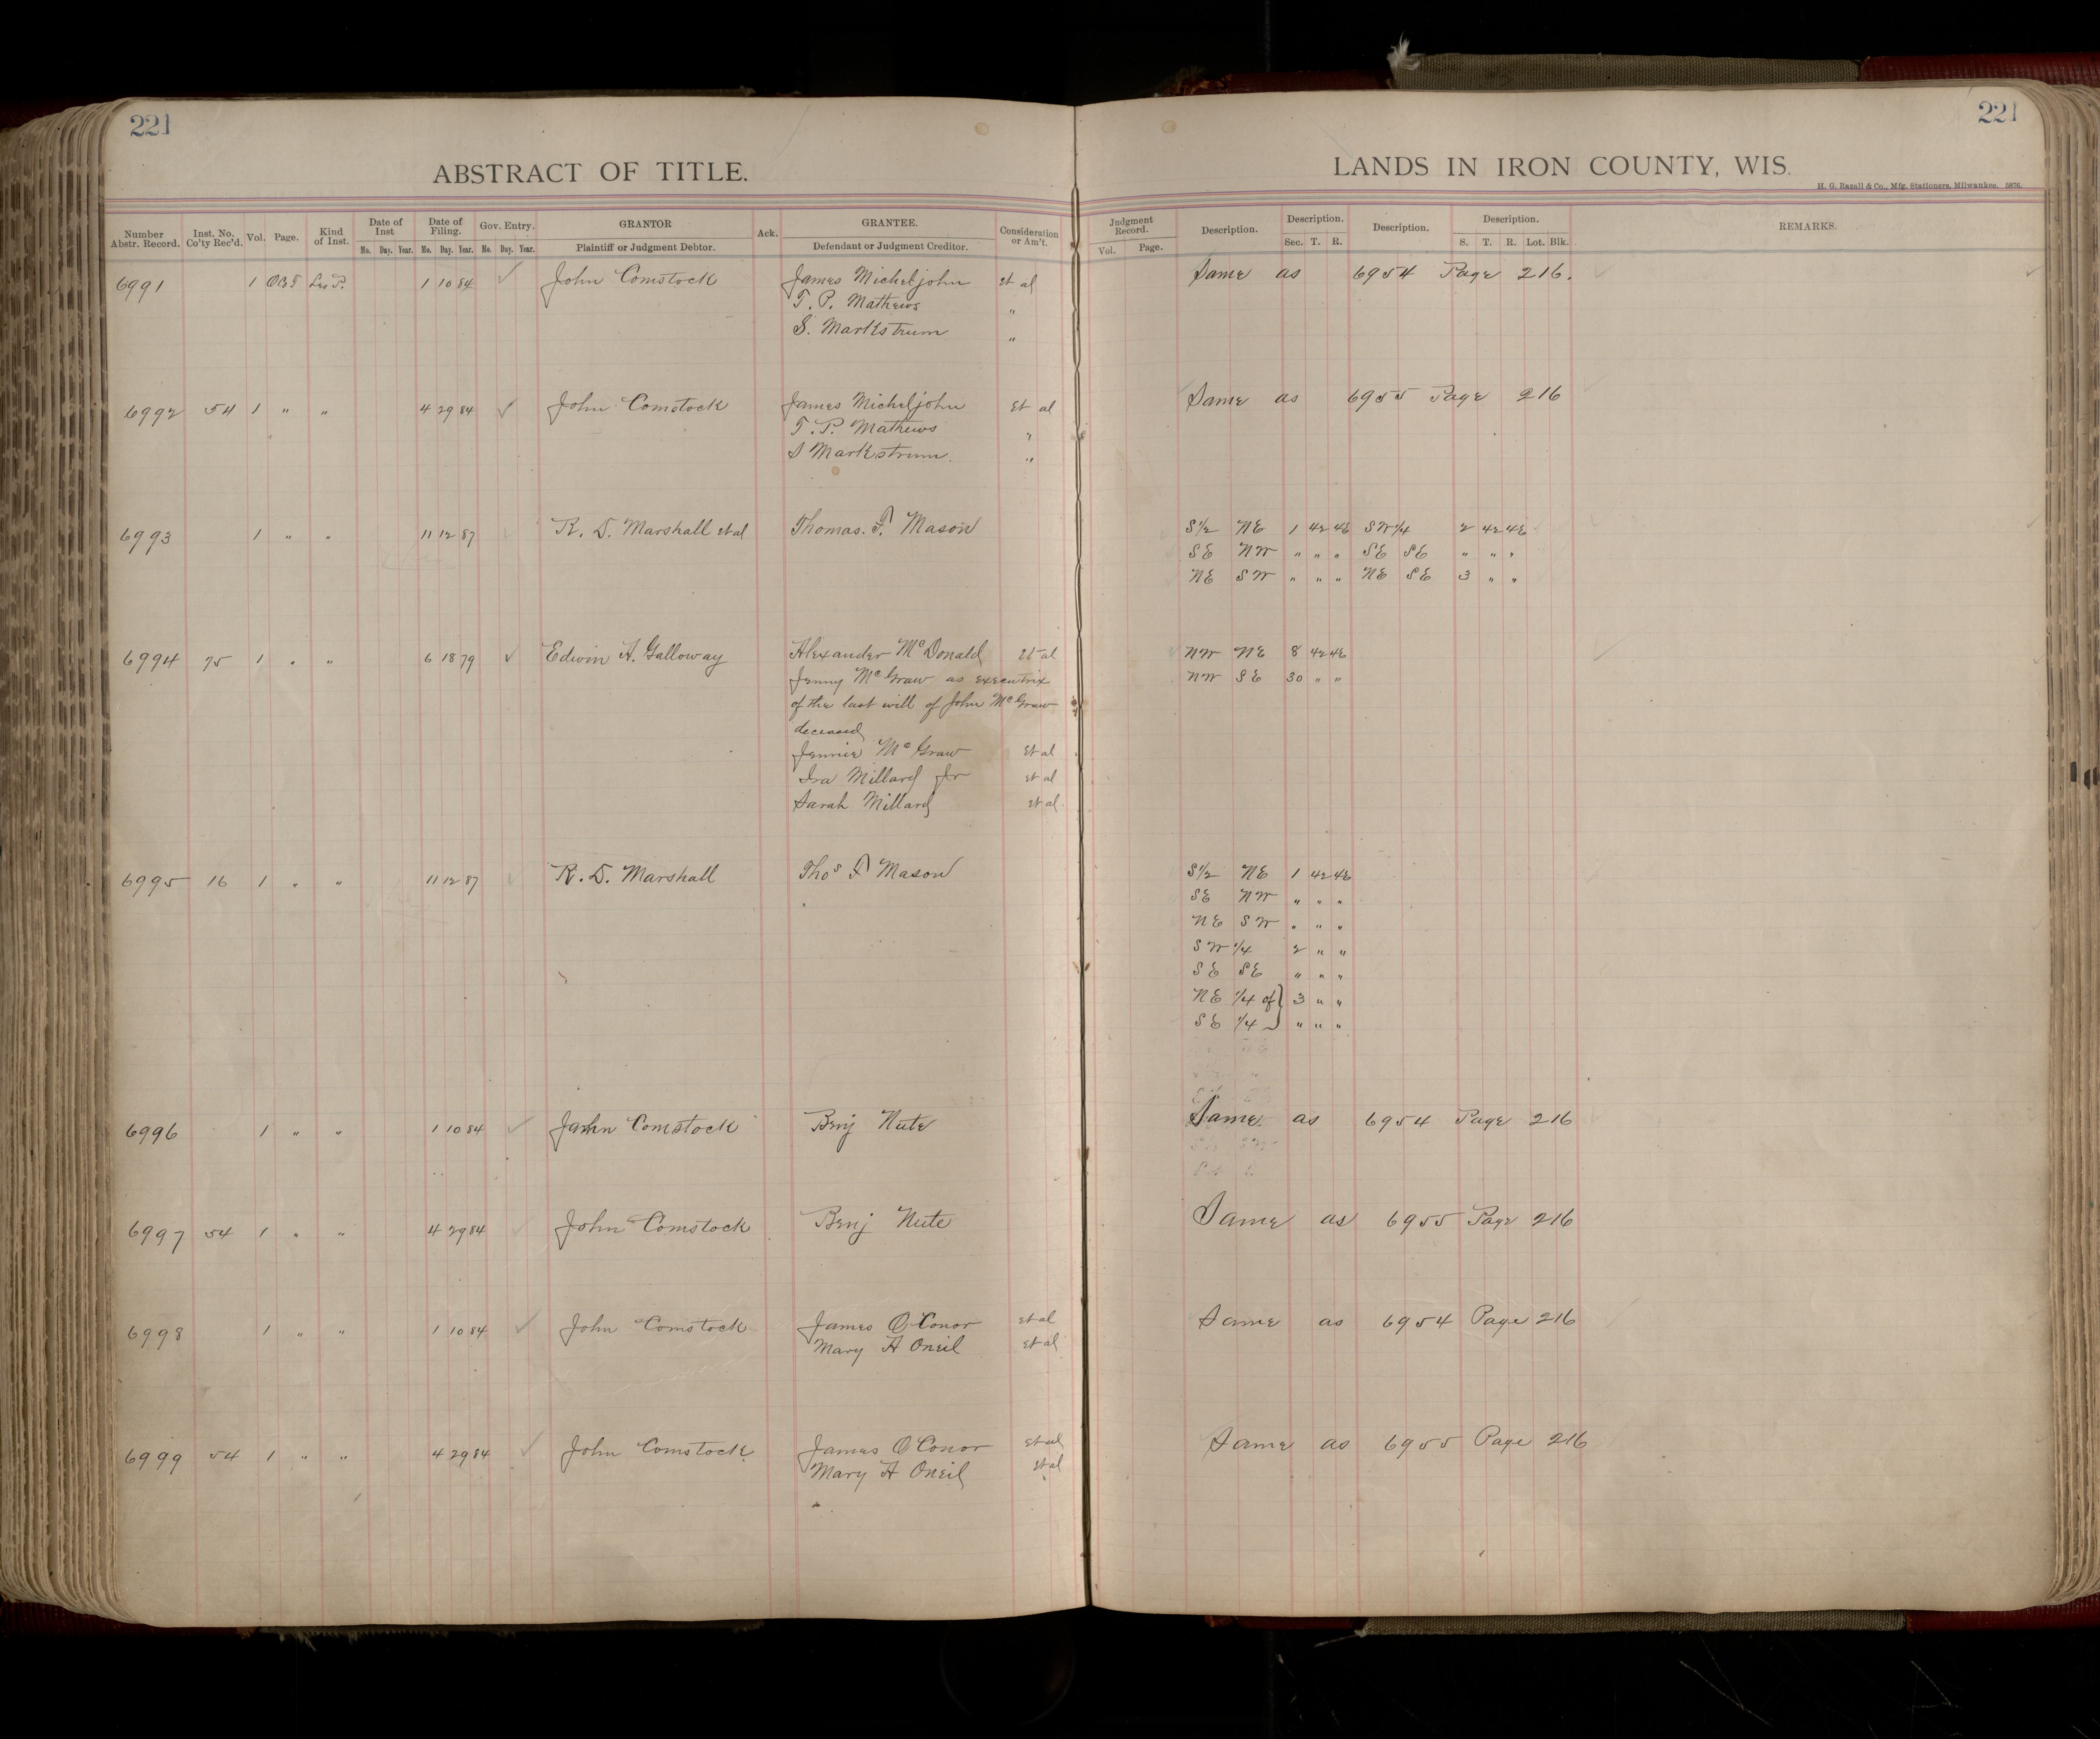 221
221
ABSTRACT OF TITLE.
LANDS IN IRON COUNTY, WIS.
H. G. Razall & Co., Mfg. Stationers, Milwaukee. 5876.
Number Abstr. Record. Inst. No. Co'ty Rec'd. Vol. Page. Kind of Inst. Date of Inst Mo. Day. Year. Date of Filing. Mo. Day. Year. Gov. Entry. No. Day. Year. GRANTOR Plaintiff or Judgment Debtor. Ack. GRANTEE. Defendant or Judgment Creditor. Consideration or Am't.
Judgment Record. Vol. Page. Description. Description. Sec. T. R. Description. Description. S. T. R. Lot. Blk. REMARKS.
6991 1 Lis P. 1 10 84 ✓ John Comstock James Micheljohn et al Same as 6954 Page 216.
T. P. Mathews "
S. Markstrum "
6992 54 1 " " 4 29 84 ✓ John Comstock James Micheljohn Et al Same as 6955 Page 216
T. P. Mathews "
S Markstrum. "
6993 1 " " 11 12 87 R. D. Marshall et al Thomas. F. Mason S1/2 NE 1 42 4E SW1/4 2 42 4E
SE NW " " " SE SE " " "
NE SW " " " NE SE 3 " "
6994 75 1 " " 6 18 79 ✓ Edwin A. Galloway Alexander McDonald Et al NW NE 8 42 4E
Jenny McGraw as executrix NW SE 30 " "
of the last will of John McGraw
deceased
Jennie McGraw Et al
Ira Millard Jr et al
Sarah Millard et al.
6995 16 1 " " 11 12 87 R. D. Marshall Thos F Mason S1/2 NE 1 42 4E
SE NW " " "
NE SW " " "
SW 1/4 2 " "
SE SE " " "
NE 1/4 of } 3 " "
SE 1/4 } " " "
6996 1 " " 1 10 84 ✓ John Comstock Benj Nute Same as 6954 Page 216
6997 54 1 " " 4 29 84 John Comstock Benj Nute Same as 6955 Page 216
6998 1 " " 1 10 84 ✓ John Comstock James O'Conor et al Same as 6954 Page 216
Mary A Oneil Et al
6999 54 1 " " 4 29 84 ✓ John Comstock. James O'Conor et al Same as 6955 Page 216
Mary A Oneil et al